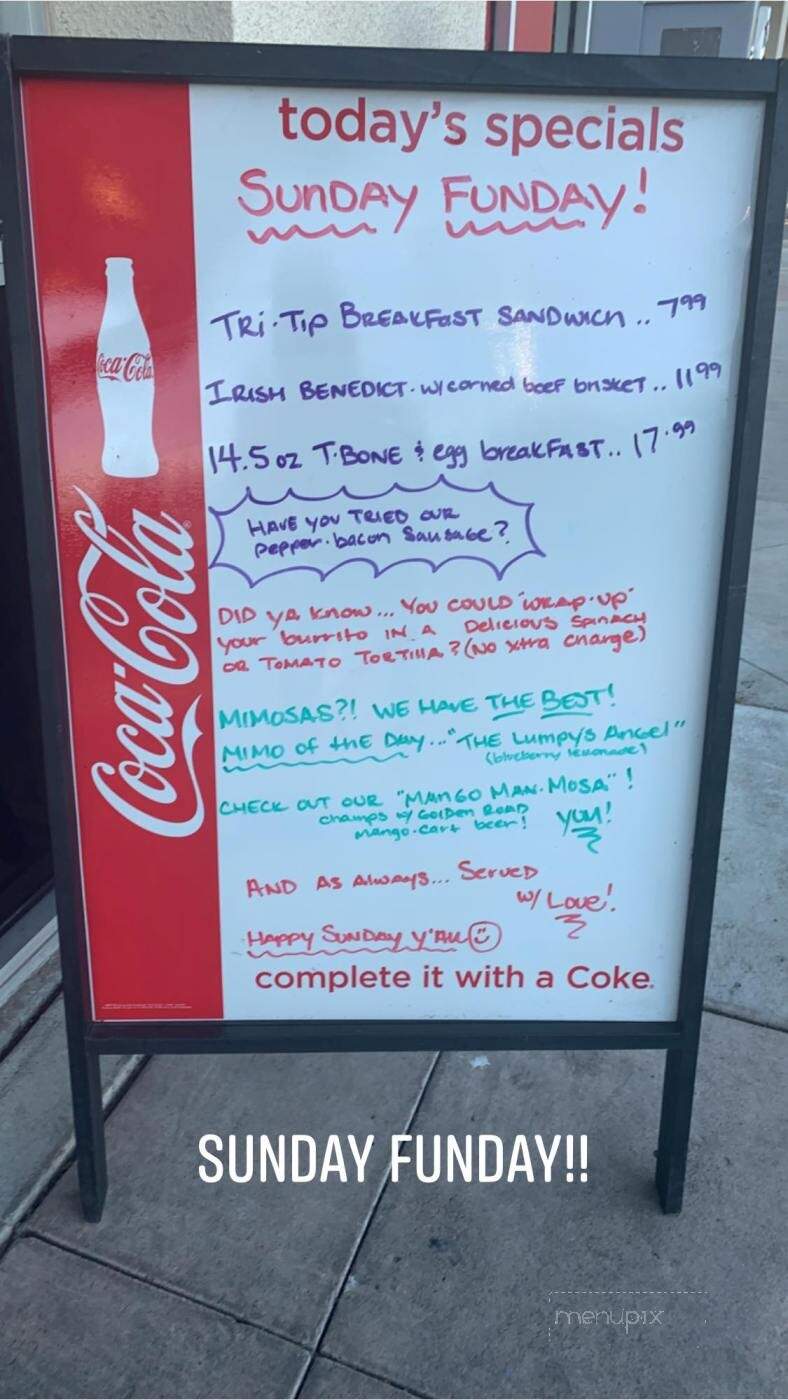 today's specials
SUNDAY FUNDAY!
TRI-TIP BREAKFAST SANDWICH .. 7⁹⁹
IRISH BENEDICT - w/ corned beef brisket .. 11⁹⁹
14.5 oz T-BONE & egg breakFAST.. 17.⁹⁹
HAVE YOU TRIED OUR
Pepper-bacon Sausage?
DID YA KNOW... YOU COULD "WRAP-UP"
your burrito IN A Delicious SPINACH
OR TOMATO TORTILLA? (NO Xtra charge)
MIMOSAS?! WE HAVE THE BEST!
MIMO of tHE Day..."THE Lumpy's Angel"
(blueberry lemonade)
CHECK OUT OUR "MANGO MAN-MOSA"!
champs w/ GOLDEN ROAD
mango-cart beer!
YUM!
AND AS ALWAYS... Served
w/ Love!
HAPPY SUNDAY Y'ALL
complete it with a Coke.
Coca-Cola
Coca-Cola
SUNDAY FUNDAY!!
menupix